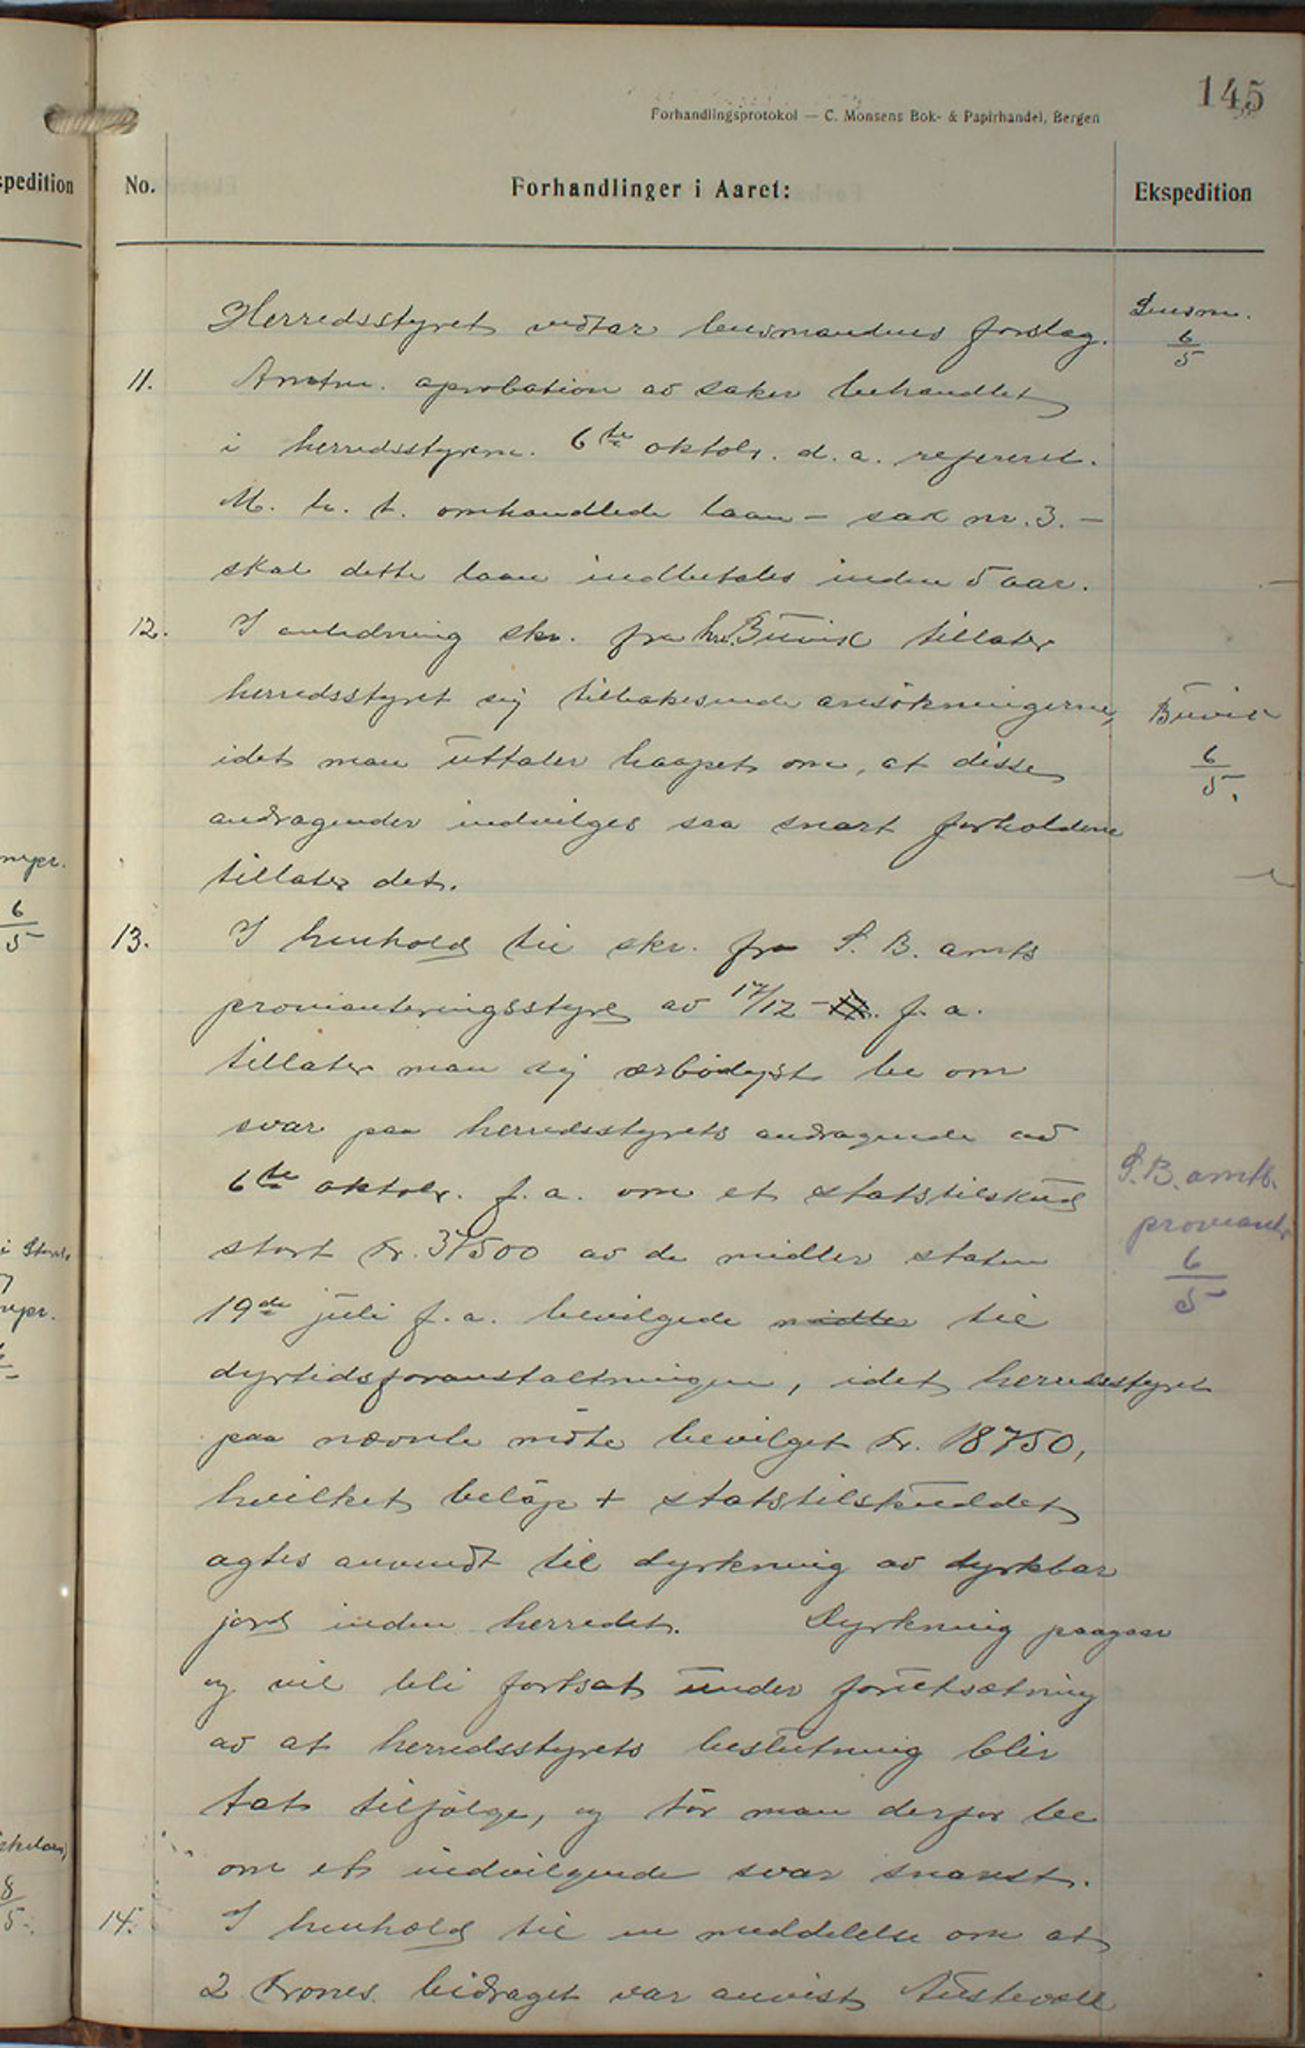 145
Forhandlingsprotokol — C. Monsens Bok- & Papirhandel, Bergen
spedition
No.
Forhandlinger i Aaret:
Ekspedition
Herredsstyret vedtar lensmandens forslag.
Lensm.
6/5
11. Amtm. aprobation av saker behandlet
i herredsstyrem. 6te oktobr. d. a. refereret.
M. h. t. omhandlede laan – sak nr. 3. –
skal dette laan indbetales inden 5 aar.
12. I anledning skr. fra hr. Buvik tillater
herredsstyret sig tilbakesende ansökningerne,
Buvik
idet man uttaler haapet om, at disse
6/5.
andragender indvilges saa snart forholdene
tillater det.
13. I henhold til skr. fra S. B. amts
provianteringsstyre av 17/12 – f. a.
tillater man sig ærbödigst be om
svar paa herredsstyrets andragende av
6te oktobr. f. a. om et statstilskud
S. B. amts.
stort kr. 37500 av de midler staten
proviant
19de juli f. a. bevilgede midler til
6/5
dyrtidsforanstaltningen, idet herredsstyret
paa nævnte möte bevilget kr. 18750,
hvilket belöp + statstilskuddet
agtes anvendt til dyrkning av dyrkbar
jord inden herredet. Dyrkning paagaar
og vil bli fortsat under forutsætning
av at herredsstyrets beslutning blir
tat tilfölge, og tör man derfor be
om et indvilgende svar snarest.
14. I henhold til en meddelelse om at
2 krones bidraget var anvist Austevoll